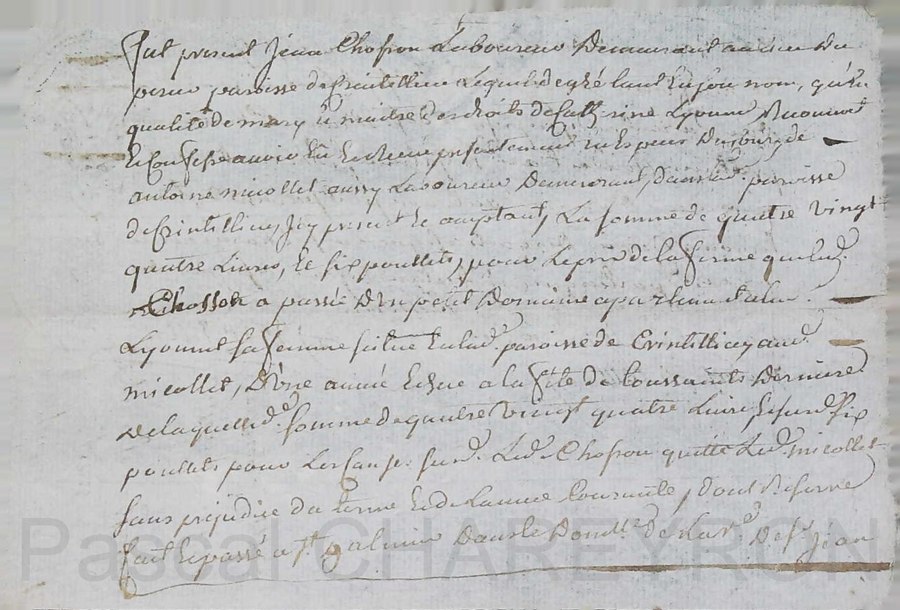 fut present Jean Chosson Laboureur Demeurant au lieu du
paroisse de Crintillieu Lequel de gré tant En son nom, qu'en
qualité de mary Et maitre des droits de Catherine Lyonnet Reconnoit
Et Confesse avoir Eu Et Receu presentement En Especes Du cours de
antoine micollet aussy Laboureur Demeurant paroisse
de Crintillieu Icy present Et acceptant, La somme de quatre vingt
quatre Livres, Et six poullets, pour Le prix de la ferme que Led.
Chosson a passée D'un petit Domaine apartenant a lad.
Lyonnet sa femme scitué En lad.e paroisse de Crintillieu aud.
micollet, D'une année Echue a la fete de toussaints Derniere
De laquelle d.e somme de quatre vingt quatre Livres Et susd. six
poullets pour Les Causes susd. Led. Chosson quitte Led. micollet
sans prejudice du terme Et de L'année Courante, dont Reserve
fait Et passé a St galmier Dans le Domlle De De St Jean
Pascal CHAREYRON